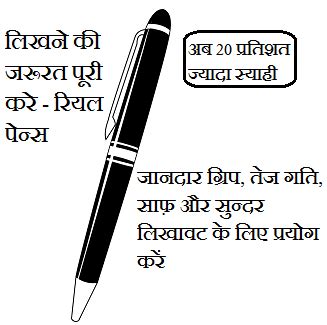 लिखने की
जरूरत पूरी
करे - रियल
पेन्स
अब 20 प्रतिशत
ज्यादा स्याही
जानदार ग्रिप, तेज गति,
साफ़ और सुन्दर
लिखावट के लिए प्रयोग
करें